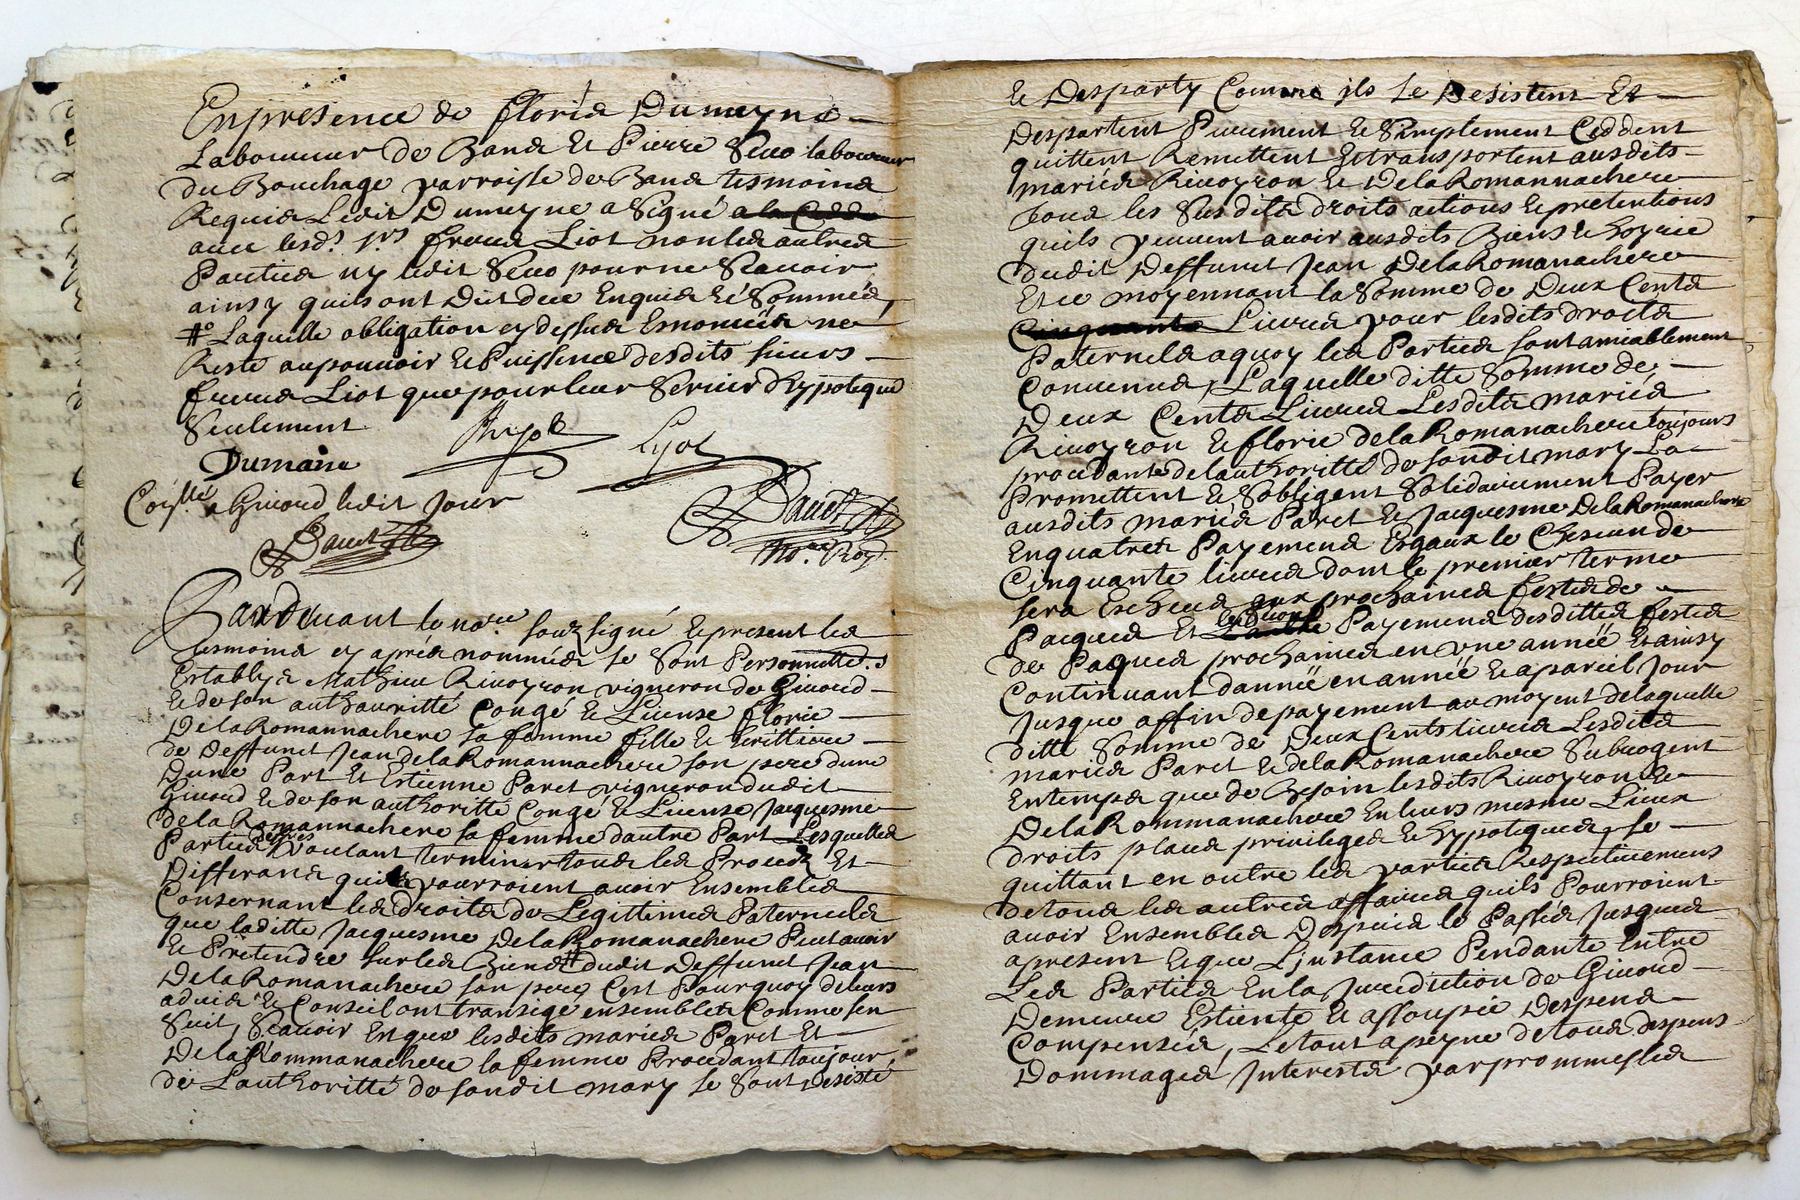 En presence de floris Dumeyne
Laboureur de Bans Et Pierre Seuo laboureur
du Bouchage parroisse de Bans tesmoins
Requis Ledit Dumeyne a Signé a la Cedde
auec lesd.s freres Liot non les autres
Parties ny ledit Seuo pour ne Scauoir
ainsy quils ont Dit de ce Enquis Et Sommés,
# Laquelle obligation cy dessus Enoncée ne
Reste au pouuoir & Puissence desdits sieurs
freres Liot que pour leur Seruir d'hypoteque
Seulement
Lyot
Dumaine
a Giuord ledit Jour
Not.re Roy.
Pardeuant le no.re souzsigné & present les
tesmoins cy aprés nommés se Sont Personnelle.t
Establys Mathieu Riuoyron vigneron de Giuord
& de son authauritté Congé & License florie
De la Romannachere sa femme fille & herittiere
de Deffunct Jean de la Romannachere son pere dune
Dune Part Et Estienne Paret vigneron dudit
Giuord & de son authoritté Congé & License Jaquesme
de la Romannachere sa femme dautre Part Lesquelles
Parties Desirés Voulant terminer tous les Procés Et
Differans quils pourroient auoir Ensembles
Consernant les droits de Legittimes Paternels
que laditte Jacquesme De la Romanachere Peut auoir
& Prétendre sur les Biens # dudit Deffunct Jean
De la Romanachere son pere, Cest Pourquoy de leurs
aduis & Conseil ont transigé ensembles Comme sen
Suit, Scauoir Est que lesdits mariés Paret Et
De la Rommanachere sa femme Procedant toujour
de Lauthoritté de sondit mary se Sont Desisté
& Desparty Comme jls se Desistent Et
Despartent Purement & Simplement Ceddent
quittent Remettent & transportent ausdits
mariés Riuoyron & De la Romannachere
tous les Susdits droits actions & pretentions
quils peuuent auoir ausdits Biens & hoyrie
dudit Deffunct Jean De la Romanachere
Et ce moyennant la Somme de Deux Cents
Cinquante Liures pour lesdits droits
Paternels a quoy les Parties sont amiablement
Conuenus, Laquelle ditte Somme de
Deux Cents Liures Lesdits mariés
Riuoyron & florie de la Romanachere toujours
procedante de lauthoritté de sondit mary La
Promettent & Sobligent Solidairement Payer
ausdits mariés Paret & Jacquesme De la Romanachere
En quatre Payemens Esgaux le Chescun de
Cinquante liures dont le premier terme
sera Escheus aux prochaines festes de
Pacques Et Lautre les autres Payemens desdittes festes
de Paques prochaines en vne année Et ainsy
Continuant dannée en année & a pareil Jour
Jusque affin de payement au moyent de laquelle
ditte Somme de Deux Cents liures Lesdits
mariés Paret & de la Romanachere Subrogent
En temps que de Besoin lesdits Riuoyron &
De la Rommanachere En leurs mesme Lieux
droits place priuileges & hypoteques, se
quittant en outre les parties Respectiuement
de tous les autres affaires quils Pourroient
auoir Ensembles Despuis le Passés Jusques
a present & que Ljnstance Pendante Entre
Les Parties En la Jurediction de Giuord
Demeure Esteinte & assoupie Despens
Compensés, Le tout a peyne de tous despens
Dommages Jnterests par prommesses